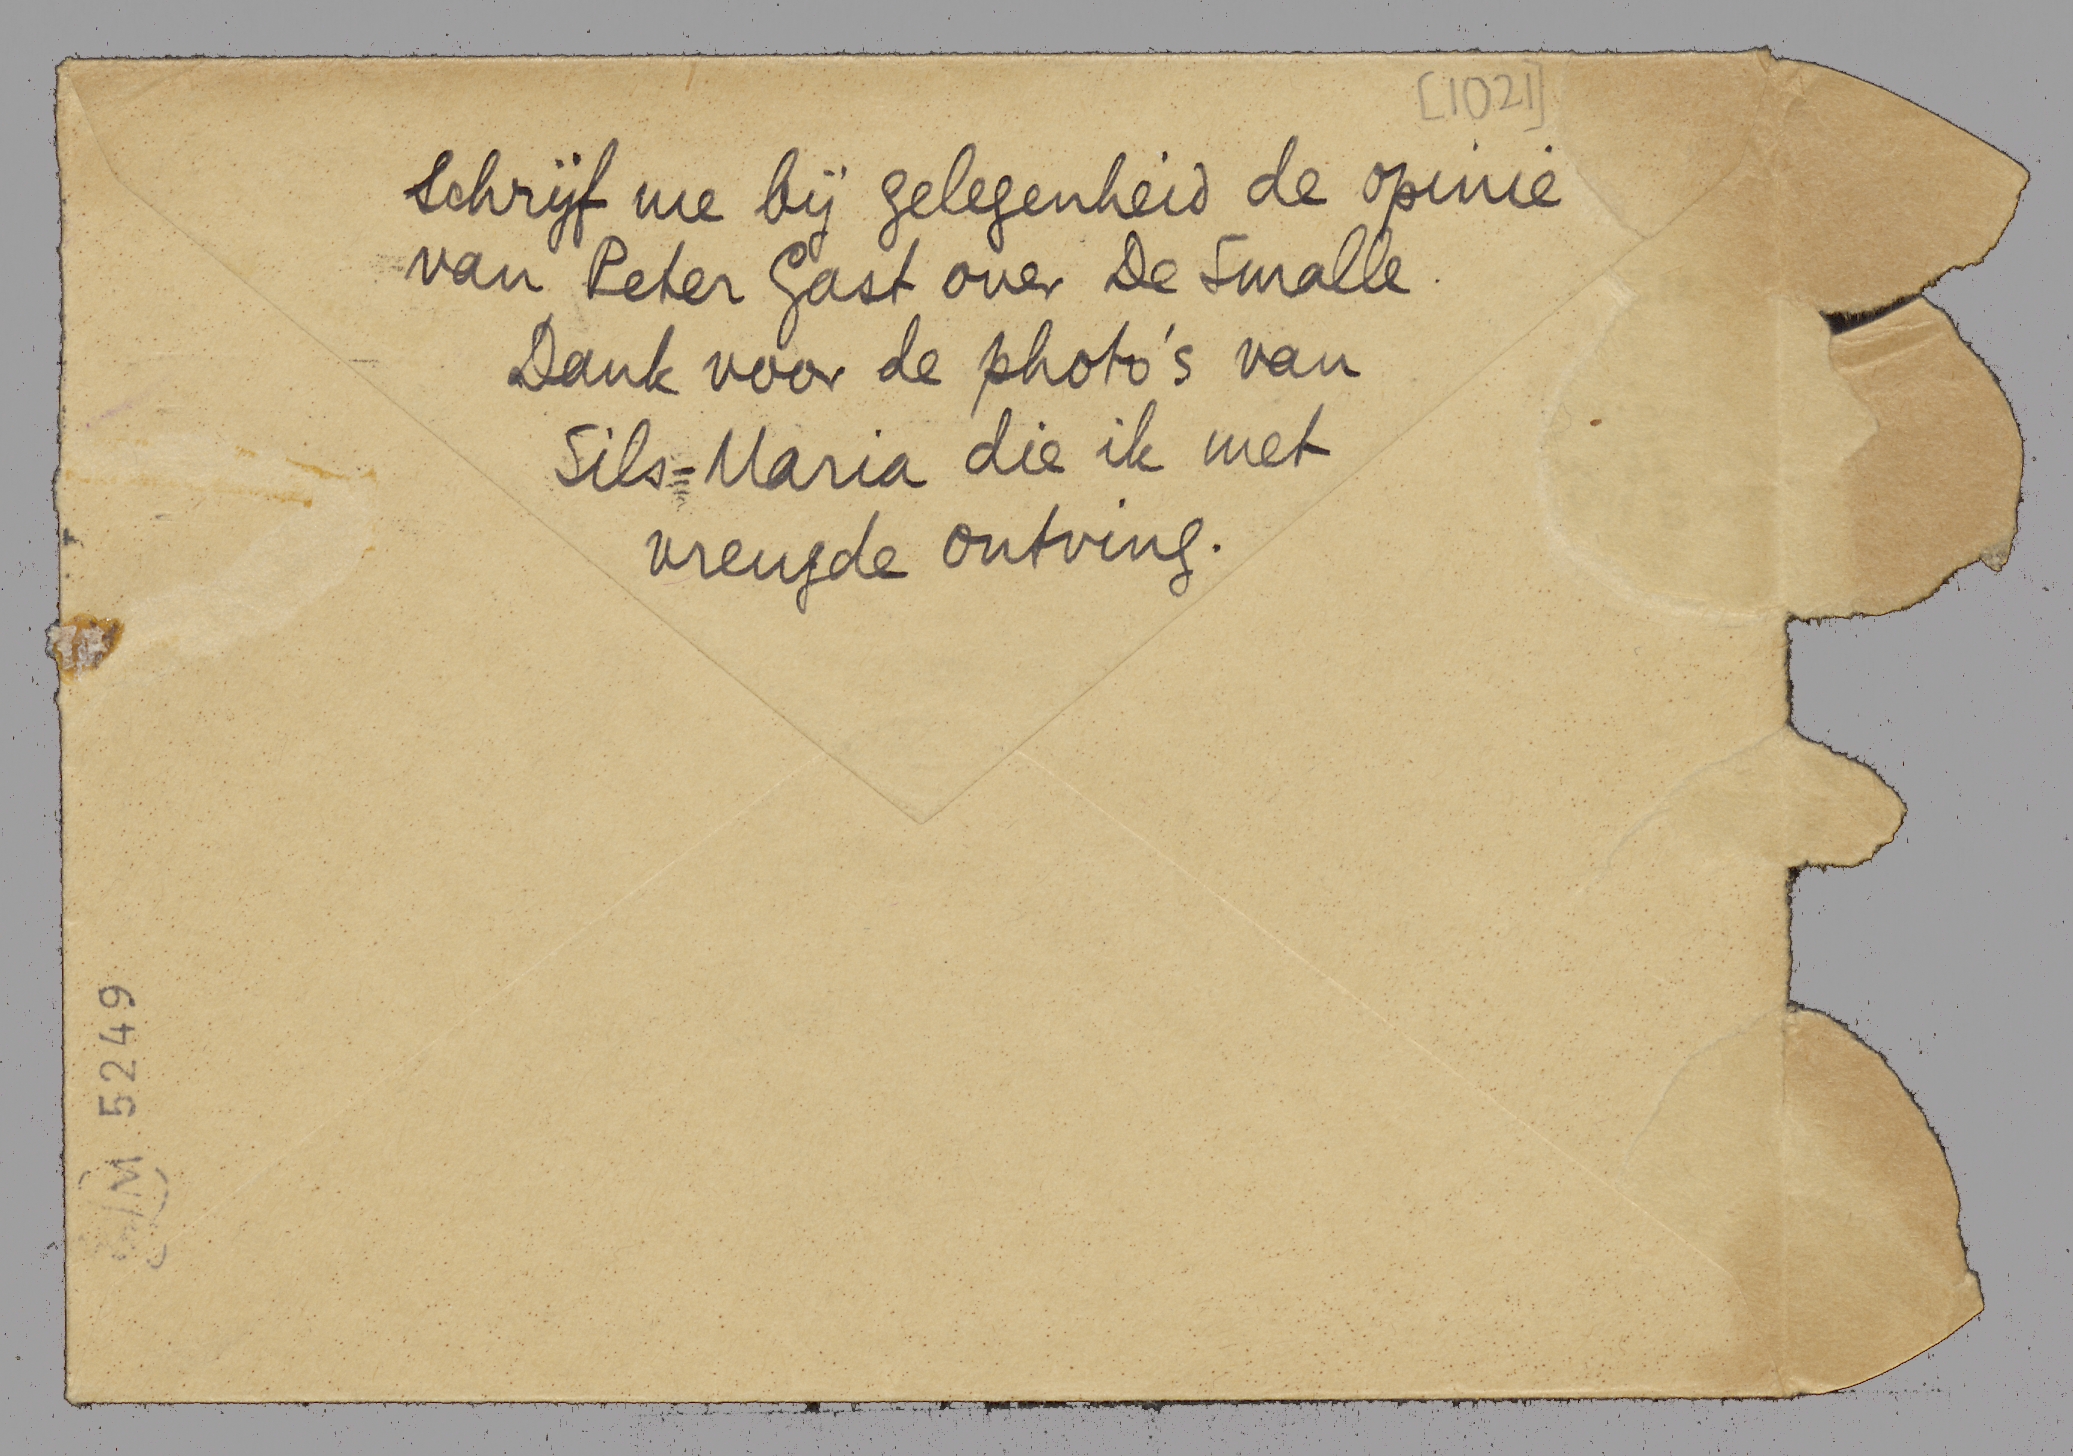 [1021]
Schrijf me bij gelegenheid de opinie
van Peter Gast over De Smalle.
Dank voor de photo's van
Sils=Maria die ik met
vreugde ontving.
M 5249